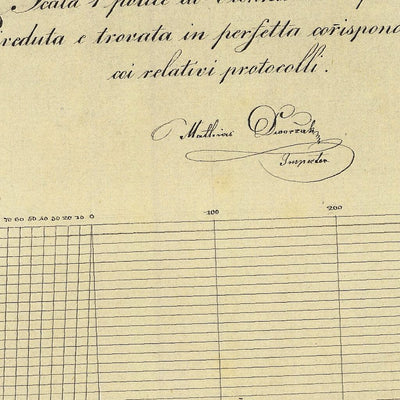 Scala 1 pollice di
reduta e trovata in perfetta corrispon
coi relativi protocolli.
Mathias Dworzak
Inspector
70 60 50 40 30 20 10 0 100 200